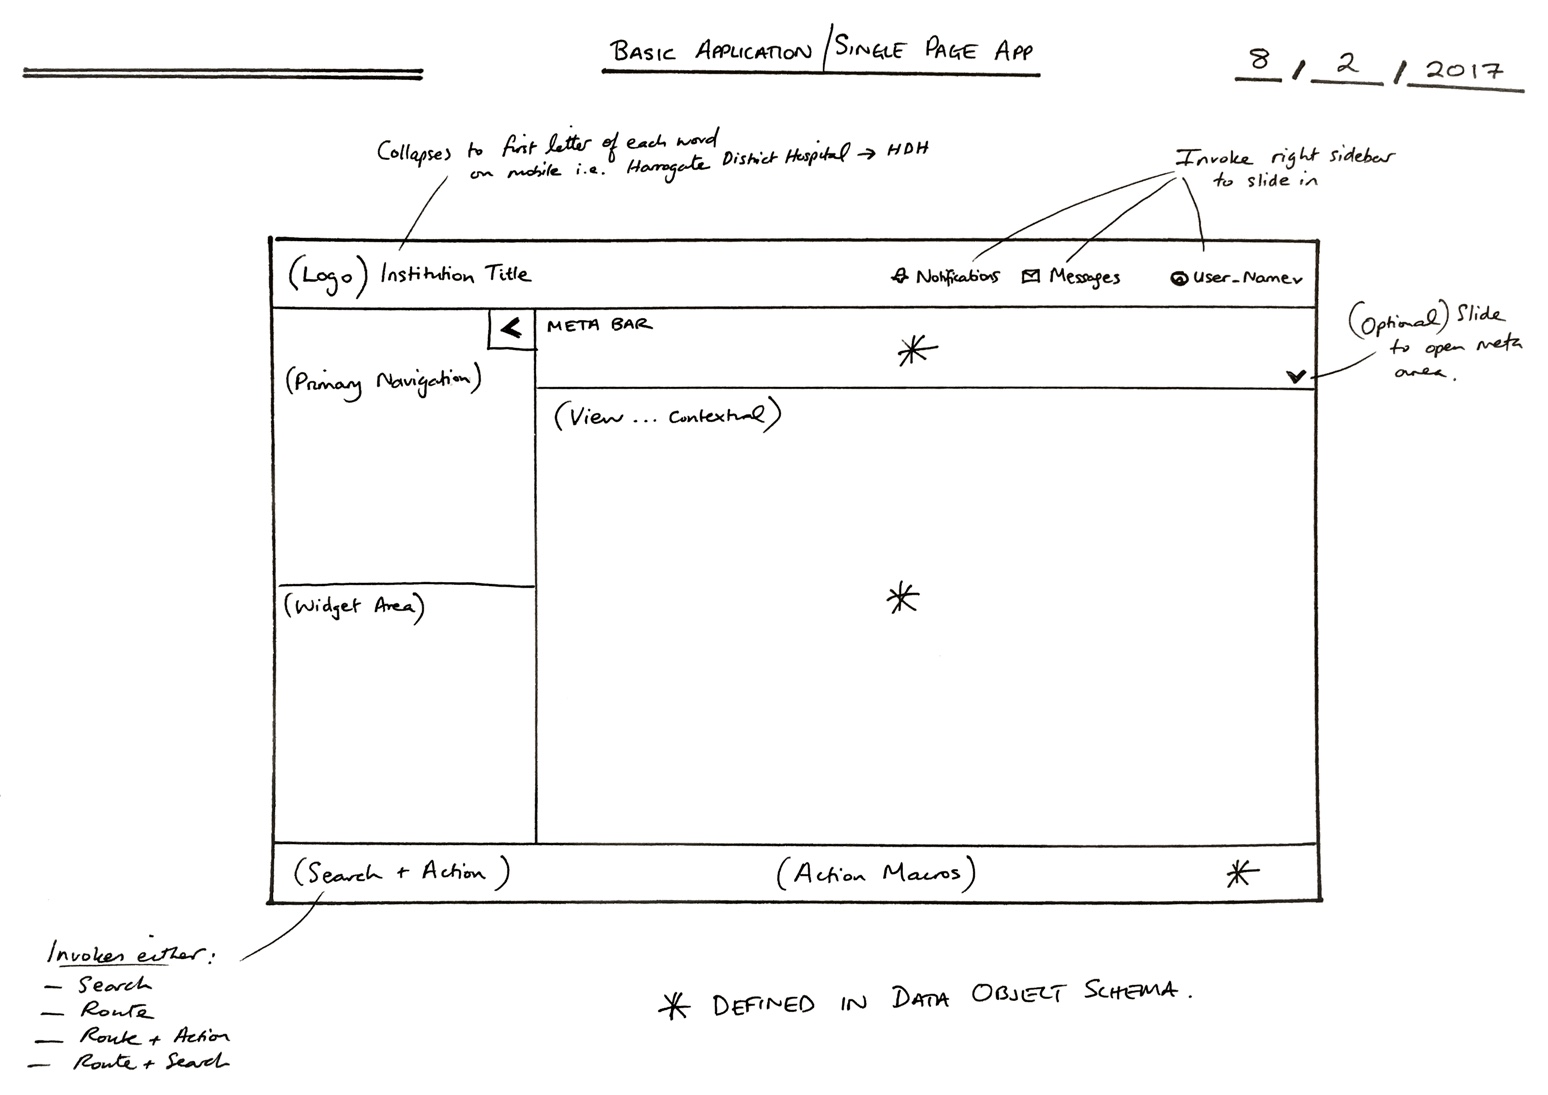 BASIC APPLICATION/SINGLE PAGE APP
8 / 2 / 2017
Collapses to first letter of each word
on mobile i.e. Harrogate District Hospital → HDH
Invoke right sidebar
to slide in
(Logo) Institution Title
Notifications
Messages
User_Name
(Optional) Slide
to open meta
area.
<
META BAR
*
(Primary Navigation)
(View ... Contextual)
(Widget Area)
*
(Search + Action)
(Action Macros)
*
Invokes either:
— Search
— Route
— Route + Action
— Route + Search
* DEFINED IN DATA OBJECT SCHEMA.